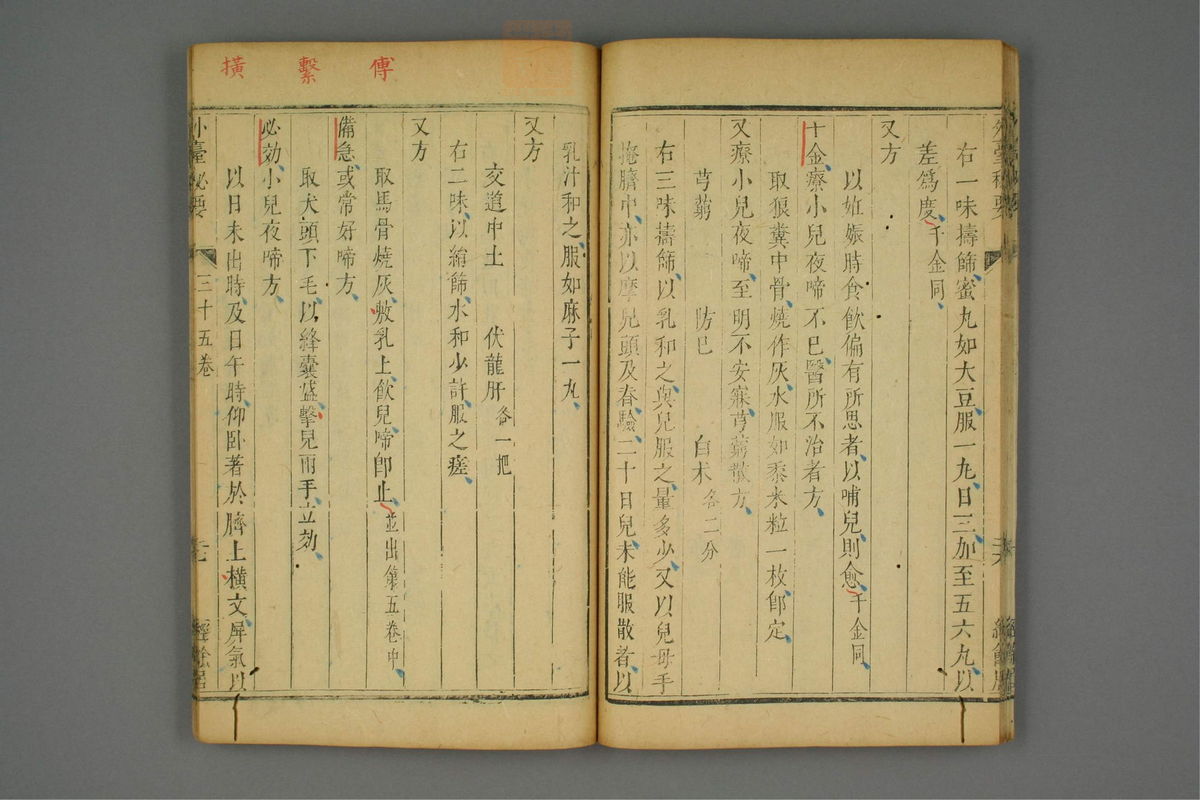 右一味擣篩蜜丸如大豆服一丸日三加至五六丸以
差爲慶千金同
又方
以姙娠時食飲偏有所思者以哺兒則愈千金同
千金療小兒夜啼不已醫所不治者方
取狼糞中骨燒作灰水服如黍米粒一枚卽定
又療小兒夜啼至明不安寐芎藭散方
芎藭 防巳 白朮各二分
右三味擣篩以乳和之與兒服之量多少又以兒母手
掩臍中亦以摩兒頭及脊驗二十日兒未能服散者以
乳汁和之服如麻子一丸
又方
交道中土 伏龍肝各一把
右二味以絹篩水和少許服之瘥
又方
取馬骨燒灰敷乳上飲兒啼卽止並出第五卷中
備急或常好啼方
取犬頭下毛以絳囊盛擊兒兩手立効
必効小兒夜啼方
以日未出時及日午時仰卧著於臍上横文屏氣以
外臺秘要 三十五卷
傅
繫
橫